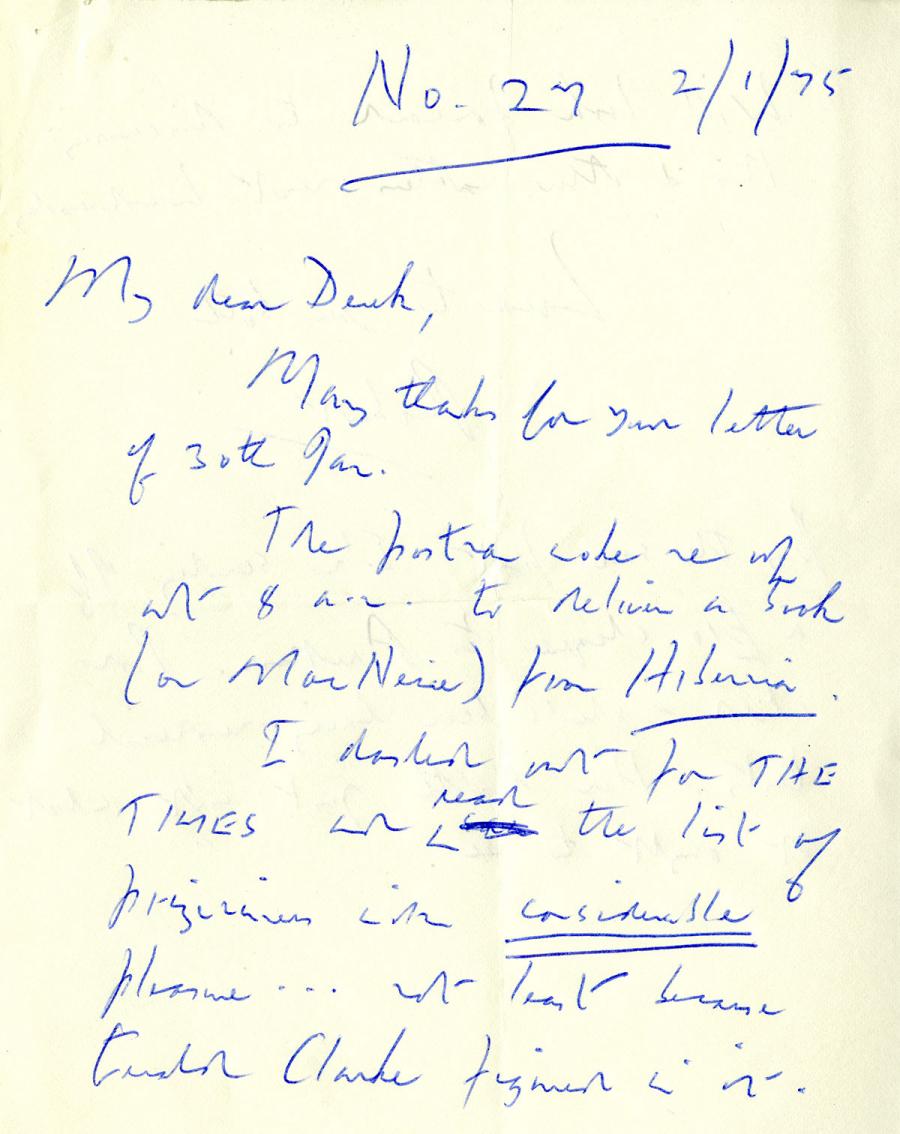 No. 27 2/1/75
My dear Derek,
Many thanks for your letter
of 30th Jan.
The postman woke me up
at 8 a.m. to deliver a book
(on MacNeice) from Hibernia.
I dashed out for THE
TIMES and read the list of
prizewinners with considerable
pleasure ... not least because
Clarke figured in it.